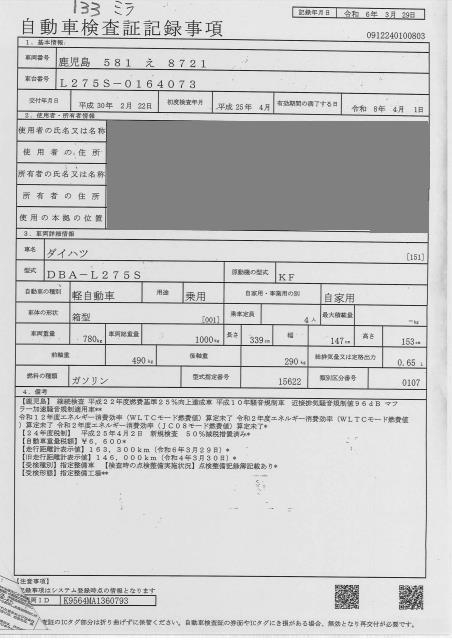 133 ミラ
記録年月日 令和 6年 3月 29日
自動車検査証記録事項
0912240100803
1．基本情報
車両番号 鹿児島 581 え 8721
車台番号 L275S-0164073
交付年月日 平成 30年 2月 22日 初度検査年月 平成 25年 4月 有効期間の満了する日 令和 8年 4月 1日
2．使用者・所有者情報
使用者の氏名又は名称
使用者の住所
所有者の氏名又は名称
所有者の住所
使用の本拠の位置
3．車両詳細情報
車名 ダイハツ [151]
型式 DBA-L275S 原動機の型式 KF
自動車の種別 軽自動車 用途 乗用 自家用・事業用の別 自家用
車体の形状 箱型 [001] 乗車定員 4人 最大積載量 －kg
車両重量 780kg 車両総重量 1000kg 長さ 339cm 幅 147cm 高さ 153cm
前軸重 490kg 後軸重 290kg 総排気量又は定格出力 0.65L
燃料の種類 ガソリン 型式指定番号 15622 類別区分番号 0107
4．備考
【鹿児島】 継続検査 平成22年度燃費基準25％向上達成車 平成10年騒音規制車 近接排気騒音規制値96dB マフ
ラー加速騒音規制適用車**
令和12年度エネルギー消費効率（WLTCモード燃費値）算定未了 令和2年度エネルギー消費効率（WLTCモード燃費値
）算定未了 令和2年度エネルギー消費効率（JC08モード燃費値）算定未了*
【24年度税制】 平成25年4月2日 新規検査 50％減税措置済み*
【自動車重量税額】¥6,600*
【走行距離計表示値】163,300km（令和6年3月29日）*
【旧走行距離計表示値】146,000km（令和4年3月30日）*
【受検種別】指定整備車 【検査時の点検整備実施状況】点検整備記録簿記載あり*
【受検形態】指定整備工場**
【注意事項】
記録事項はシステム登録時点の情報となります
車両ID K9564MA1360793
車検証のICタグ部分は折り曲げずに保管ください。自動車検査証の券面やICタグにき損がある場合、無効となり再交付が必要です。